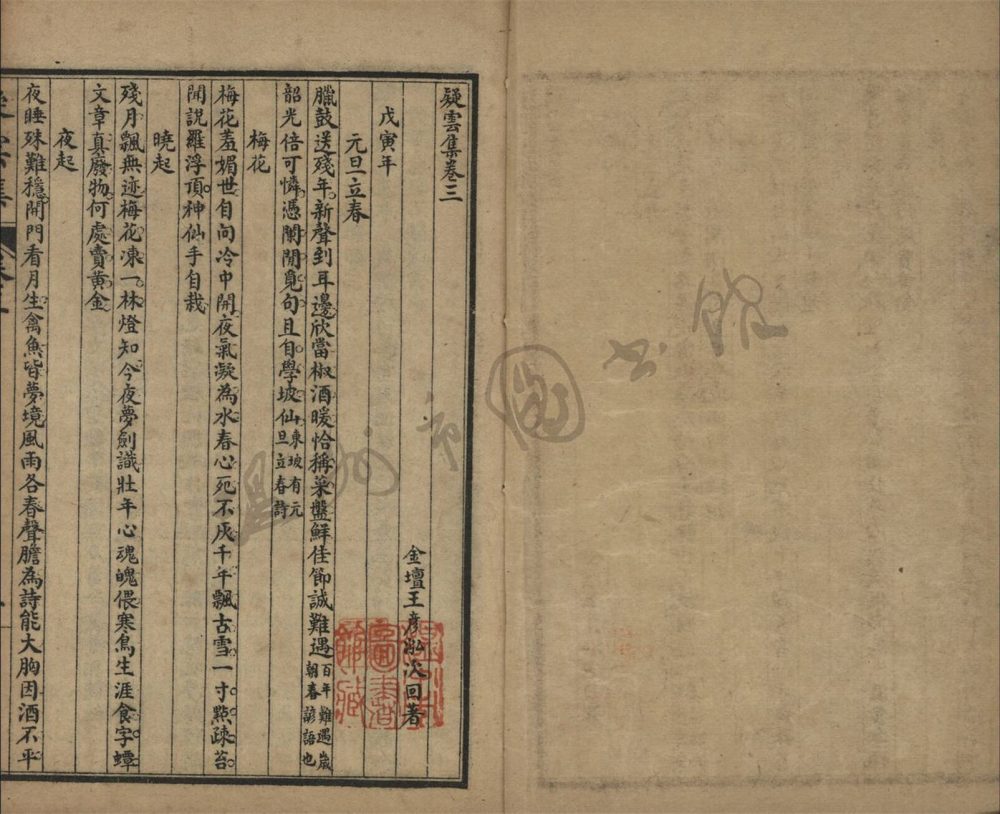 疑雲集卷三
金壇王彥泓次回著
戊寅年
元旦立春
臘鼓送殘年新聲到耳邊欣當椒酒暖恰稱菜盤鮮佳節誠難遇百年難遇歲朝春諺語也
韶光倍可憐憑闌閒覓句且自學坡仙東坡有元旦立春詩
梅花
梅花羞媚世自向冷中開夜氣凝為水春心死不灰千年飄古雪一寸點疎苔
聞說羅浮頂神仙手自栽
曉起
殘月飄無迹梅花凍一林燈知今夜夢劍識壯年心魂魄偎寒鳥生涯食字蟫
文章真廢物何處賣黃金
夜起
夜睡殊難穩開門看月生禽魚皆夢境風雨各春聲膽為詩能大胸因酒不平
溫州市圖書館